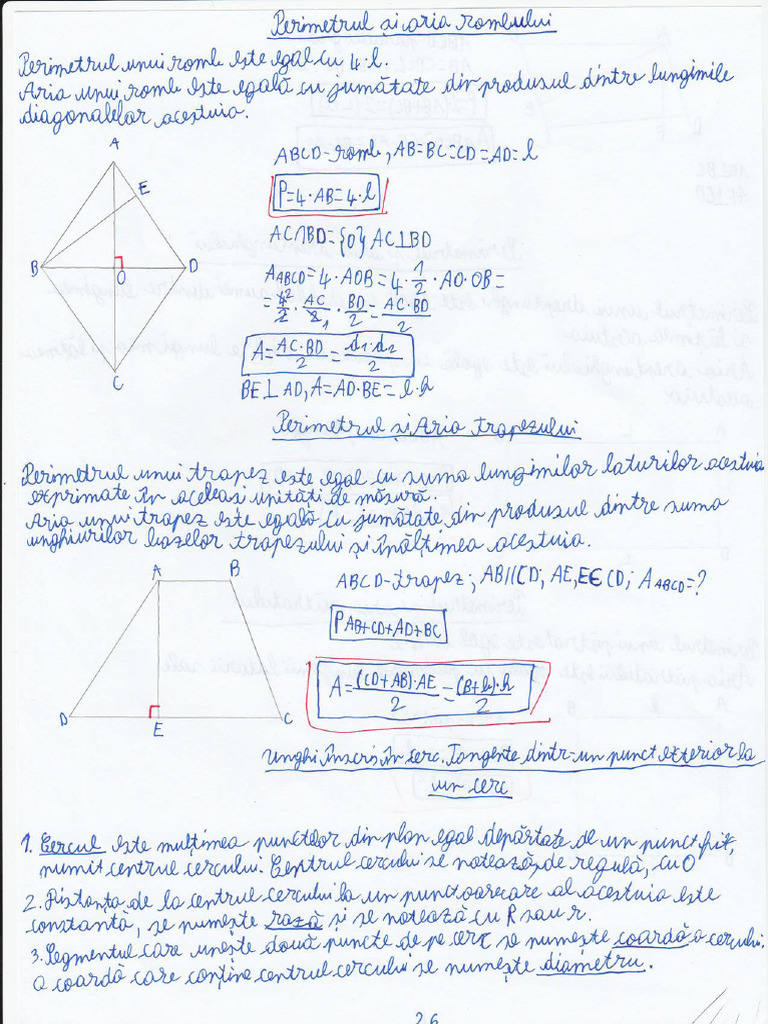 Perimetrul și aria rombului
Perimetrul unui romb este egal cu 4·l.
Aria unui romb este egală cu jumătate din produsul dintre lungimile
diagonalelor acestuia.
A
E
B
D
O
C
ABCD-romb, AB=BC=CD=AD=l
P=4·AB=4·l
AC∩BD={O} AC⊥BD
A ABCD=4·AOB=4·1/2·AO·OB=
=4/2·AC/2·BD/2=AC·BD/2
A=AC·BD/2=d1·d2/2
BE⊥AD, A=AD·BE=l·h
Perimetrul și Aria trapezului
Perimetrul unui trapez este egal cu suma lungimilor laturilor acestuia
exprimate în aceleasi unități de măsură.
Aria unui trapez este egală cu jumătate din produsul dintre suma
unghiurilor bazelor trapezului și înălțimea acestuia.
A
B
D
E
C
ABCD-trapez; AB||CD; AE, E∈CD; A ABCD=?
P AB+CD+AD+BC
A=(CD+AB)·AE/2=(B+b)·h/2
Unghi înscris în cerc. Tangente dintr-un punct exterior la
un cerc
1. Cercul este mulțimea punctelor din plan egal depărtate de un punct fix,
numit centrul cercului. Centrul cercului se notează, de regulă, cu O
2. Distanța de la centrul cercului la un punct oarecare al acestuia este
constantă, se numește rază și se notează cu R sau r.
3. Segmentul care unește două puncte de pe cerc se numește coardă a cercului.
O coardă care conține centrul cercului se numește diametru.
26